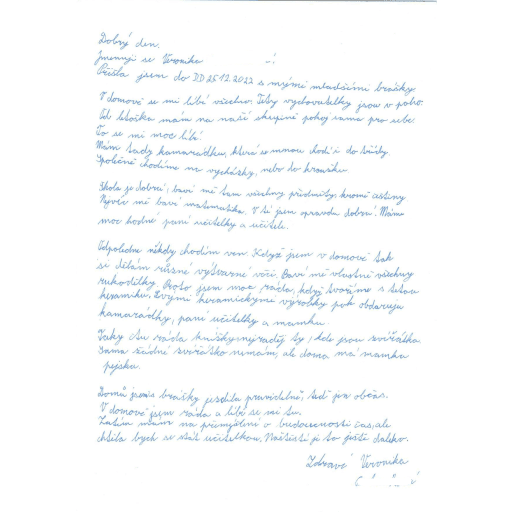 Dobrý den.
Jmenuji se Veronika
Přišla jsem do DD 25.12.2022 s mými mladšími brášky.
V domově se mi líbí všechno. Tety vychovatelky jsou v poho.
Od letoška mám na naší skupině pokoj sama pro sebe.
To se mi moc líbí.
Mám tady kamarádku, která se mnou chodí do třídy.
Společně chodíme na vycházky, nebo do kroužku.
Škola je dobrá; baví mě tam všechny předměty, kromě češtiny
Nejvíc mě baví matematika. V té jsem opravdu dobrá! Máme
moc hodné paní učitelky a učitele.
Odpoledne někdy chodím ven. Když jsem v domově tak
si dělám různé výtvarné věci. Baví mě vlastně všechny
rukodělky. Proto jsem moc ráda, když tvoříme s tetou
keramiku. Svými keramickými výrobky pak obdaruji
kamarádky, paní učitelky a mamku.
Taky čtu ráda knížky nejraděj ty, kde jsou zvířátka.
Sama žádné zvířátko nemám, ale doma má mamka
pejska.
Domů jsem s brášky jezdila pravidelně, teď jen občas.
V domově jsem ráda a líbí se mi tu.
Zatím mám na přemýšlení o budoucnosti čas, ale
chtěla bych se stát učitelkou. Naštěstí je to ještě daleko.
Zdraví Veronika